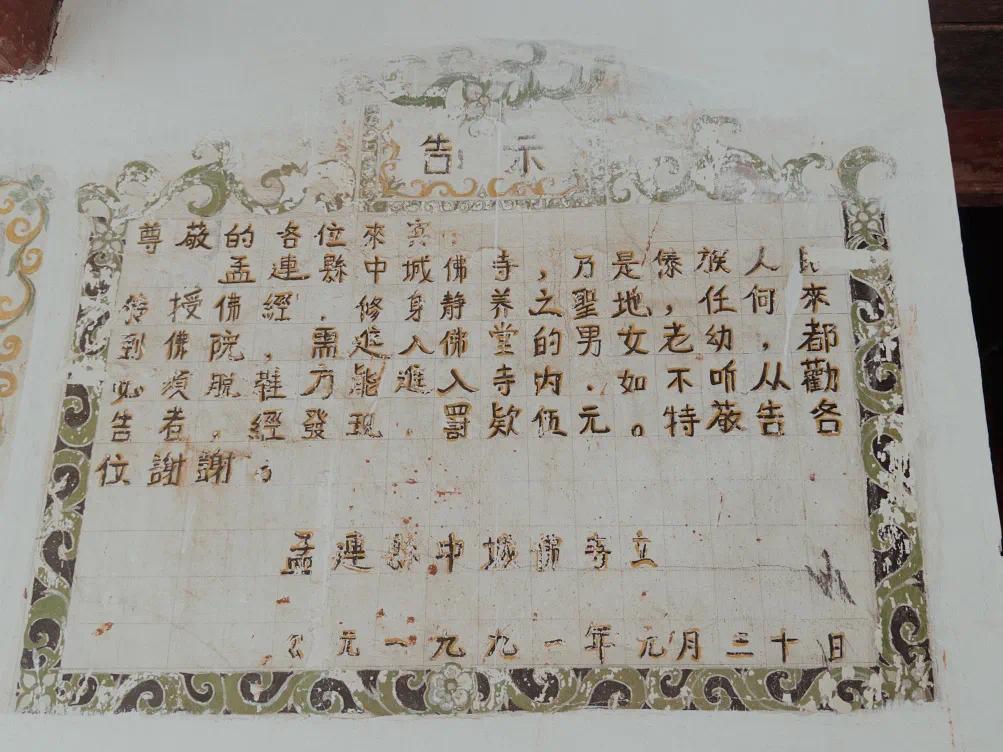 告示
尊敬的各位來賓:
孟連縣中城佛寺，乃是傣族人民
傳授佛經．修身静养之聖地，任何來
到佛院，需進入佛堂的男女老幼，都
必須脱鞋方能進入寺内．如不听从勸
告者，經發現．罰欵伍元。特敬告各
位謝謝。
孟連縣中城佛寺立
公元一九九一年元月三十日